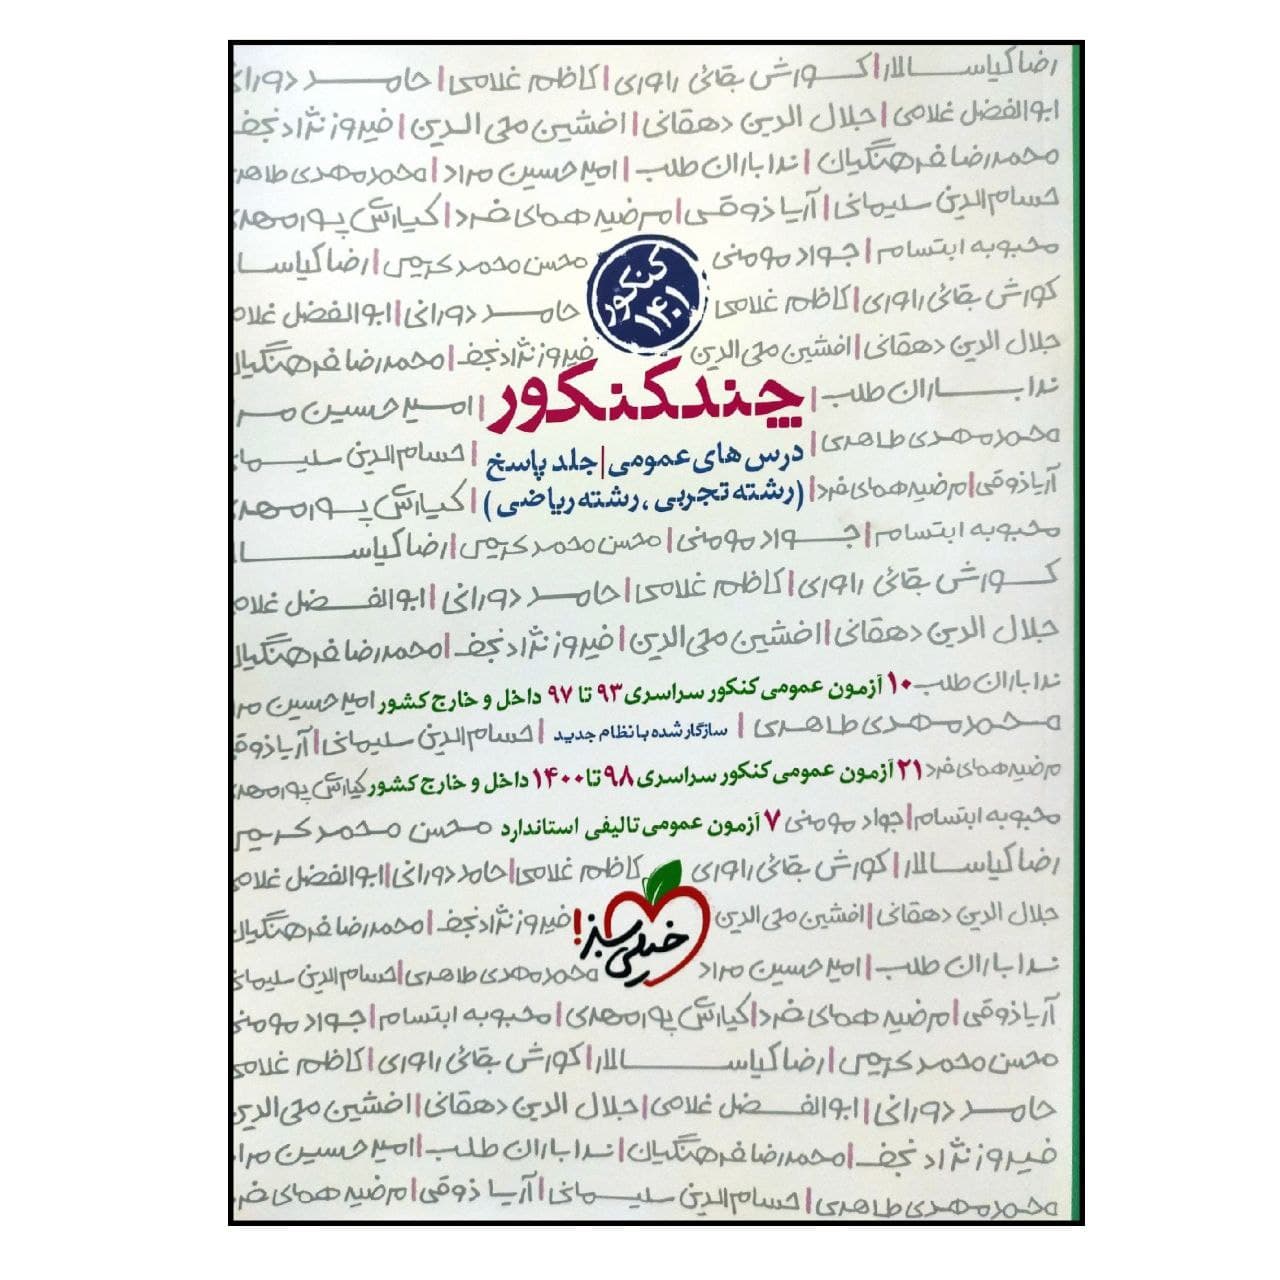 رضا کیاسالار|کورش بقائی راوری|کاظم غلامی|حامد دورانی
ابوالفضل غلامی|جلال الدین دهقانی|افشین محی الدین|فیروز نژاد نجف
محمدرضا فرهنگیان|ندا باران طلب|امیرحسین مراد|محمدمهدی طاهر
حسام‌الدین سلیمانی|آریا ذوقی|مرضیه همای فرد|کیارش پورمهد
محبوبه ابتسام|جواد مومنی محسن محمد کریمی|رضا کیاسا
کنکور
۱۴۰۱
کورش بقائی راوری|کاظم غلامی حامد دورانی|ابوالفضل غلام
جلال الدین دهقانی|افشین محی الدین فیروز نژاد نجف|محمدرضا فرهنگیان
چند کنکور
ندا باران طلب| |امیرحسین مر
درس های عمومی|جلد پاسخ
محمدمهدی طاهری| |حسام‌الدین سلیما
(رشته تجربی، رشته ریاضی)
آریا ذوقی|مرضیه همای فرد| |کیارش پورمهد
محبوبه ابتسام|جواد مومنی|محسن محمد کریمی|رضا کیاسا
کورش بقائی راوری|کاظم غلامی|حامد دورانی|ابوالفضل غلام
جلال الدین دهقانی|افشین محی الدین|فیروز نژاد نجف|محمدرضا فرهنگیان
ندا باران طلب ۱۰ آزمون عمومی کنکور سراسری ۹۳ تا ۹۷ داخل و خارج کشور امیرحسین مراد
محمدمهدی طاهری | سازگار شده با نظام جدید | حسام‌الدین سلیمانی|آریا ذوق
مرضیه همای فرد ۲۱ آزمون عمومی کنکور سراسری ۹۸ تا ۱۴۰۰ داخل و خارج کشور کیارش پورمهد
محبوبه ابتسام|جواد مومنی ۷ آزمون عمومی تالیفی استاندارد محسن محمد کریم
رضا کیاسالار|کورش بقائی راوری کاظم غلامی|حامد دورانی|ابوالفضل غلام
خیلی سبز!
جلال الدین دهقانی|افشین محی الدین فیروز نژاد نجف|محمدرضا فرهنگیان
ندا باران طلب|امیرحسین مراد محمدمهدی طاهری|حسام‌الدین سلیمان
آریا ذوقی|مرضیه همای فرد|کیارش پورمهدی|محبوبه ابتسام|جواد مومنی
محسن محمد کریمی|رضا کیاسالار|کورش بقائی راوری|کاظم غلامی
حامد دورانی|ابوالفضل غلامی|جلال الدین دهقانی|افشین محی الدین
فیروز نژاد نجف|محمدرضا فرهنگیان|ندا باران طلب|امیرحسین مراد
محمدمهدی طاهری|حسام‌الدین سلیمانی|آریا ذوقی|مرضیه همای فر